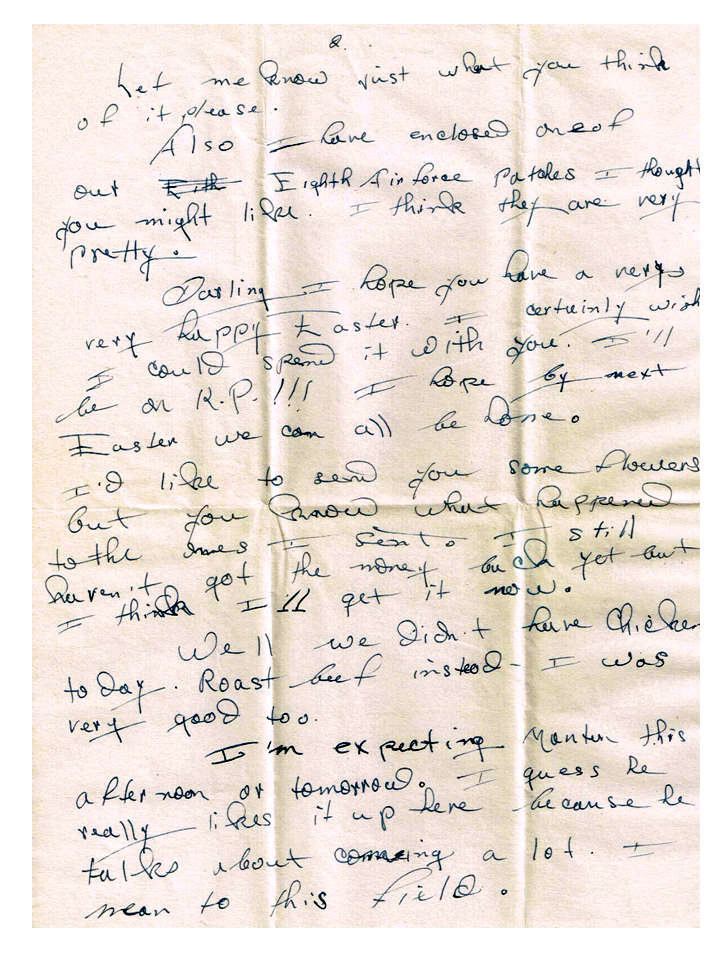 2.
Let me know just what you think
of it please.
Also I have enclosed one of
out Eighth Air force patches I thought
you might like. I think they are very
pretty.
Darling I hope you have a very,
very happy Easter. I certainly wish
I could spend it with you. I'll
be on K.P.!!! I hope by next
Easter we can all be home.
I'd like to send you some flowers
but you know what happened
to the ones I sent. I still
haven't got the money back yet but
I think I'll get it now.
Well we didn't have Chicken
today. Roast beef instead - I was
very good too.
I'm expecting this
afternoon or tomorrow. I guess he
really likes it up here because he
talks about coming a lot. I
mean to this field.